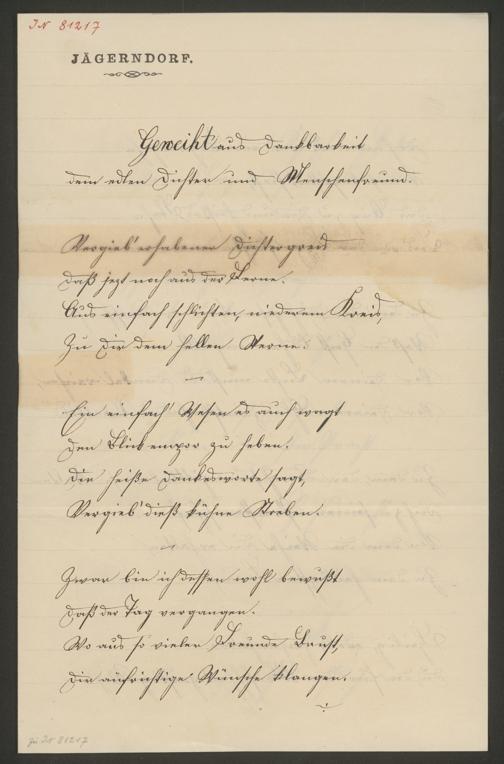 JN 81217
JÄGERNDORF.
Geweiht aus Dankbarkeit
dem edlen Dichter und Menschenfreund.
Vergieb' erhabener Dichtergreis
Daß jezt noch aus der Ferne.
Aus einfach schlichten, niederem Kreis,
Zu Dir dem hellen Sterne:
Ein einfach' Wesen es auch wagt
Den Blick empor zu heben.
Dir heiße Dankesworte sagt,
Vergieb' dieß kühne Streben.
Zwar bin ich dessen wohl bewußt
Daß der Tag vergangen.
Wo aus so vielen Freundes Brust,
Dir aufrichtige Wünsche klangen.
zu JN 81217